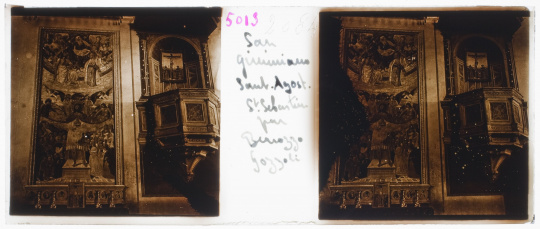 5013
San
gimmiano
Sant. Agost.
St. Sebastien
par
Benozzo
Gozzoli